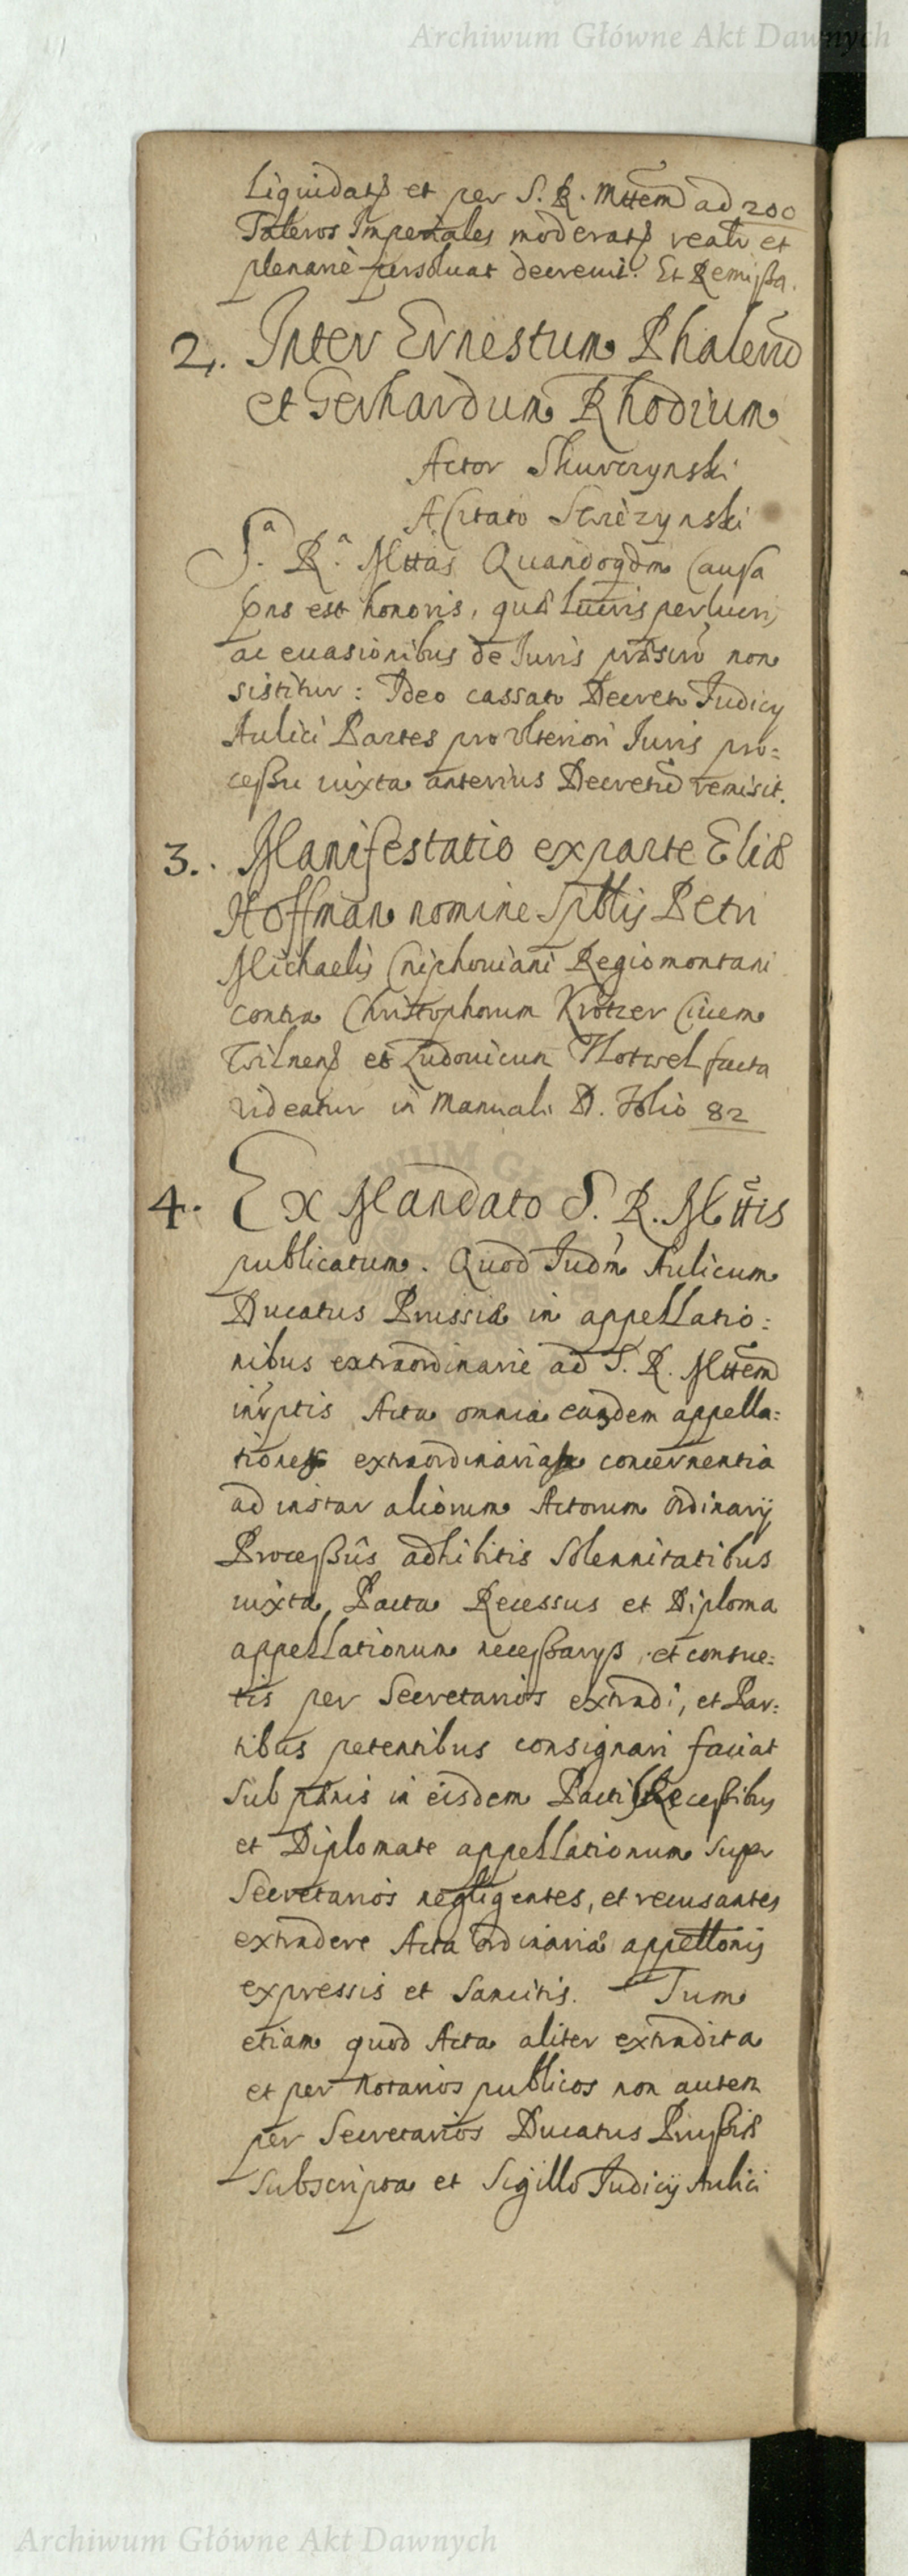 Archiwum Główne Akt Dawnych
Liquidatꝭ et per S. R. Mttem ad 200
Taleros Imperiales moderatꝭ realr et
plenariè persoluat decreuit. Et Remißa.
2. Inter Ernestum Phalend
et Gerhardum Rhodium
Actor Skurczynski
A Citato Swiezynski
Sa. Ra. Mttas Quandoqdm Causa
pns est honoris, quæ lucris
ac euasionibus de Iuris non
sistitur: Ideo cassato Decreto Iudicij
Aulici Partes pro vlteriori Iuris pro=
ceßu iuxta anterius Decretū remisit.
3. Manifestatio ex parte Eliæ
Hoffman nomine Spttis Petri
Michaelis Regiomontani
contra Christophorum Krötzer Ciuem
Vilnenꝭ et Ludouicum Notwel facta
videatur in Manuali D. Folio 82
4. Ex Mandato S. R. Mttis
publicatum. Quod Iudm Aulicum
Ducatus Prussiæ in appellatio=
nibus extraordinariè ad S. R. Mttem
Acta omnia easdem appella=
tiones extraordinarias concernentia
ad instar aliorum Actorum ordinarij
Proceßûs adhibitis Solennitatibus
iuxta Pacta Recessus et Diploma
appellationum neceßarijs et consue=
tis per Secretarios extradi, et Par=
tibus petentibus consignari faciat
Sub pænis in eisdem Pactis Receßibus
et Diplomate appellationum super
Secretarios negligentes, et recusantes
extradere Acta ordinaria appettonis
expressis et Sancitis. Tum
etiam quod Acta aliter extradita
et per Notarios publicos non autem
per Secretarios Ducatus Prußiæ
Subscripta et Sigillo Iudicij Aulici
Archiwum Główne Akt Dawnych